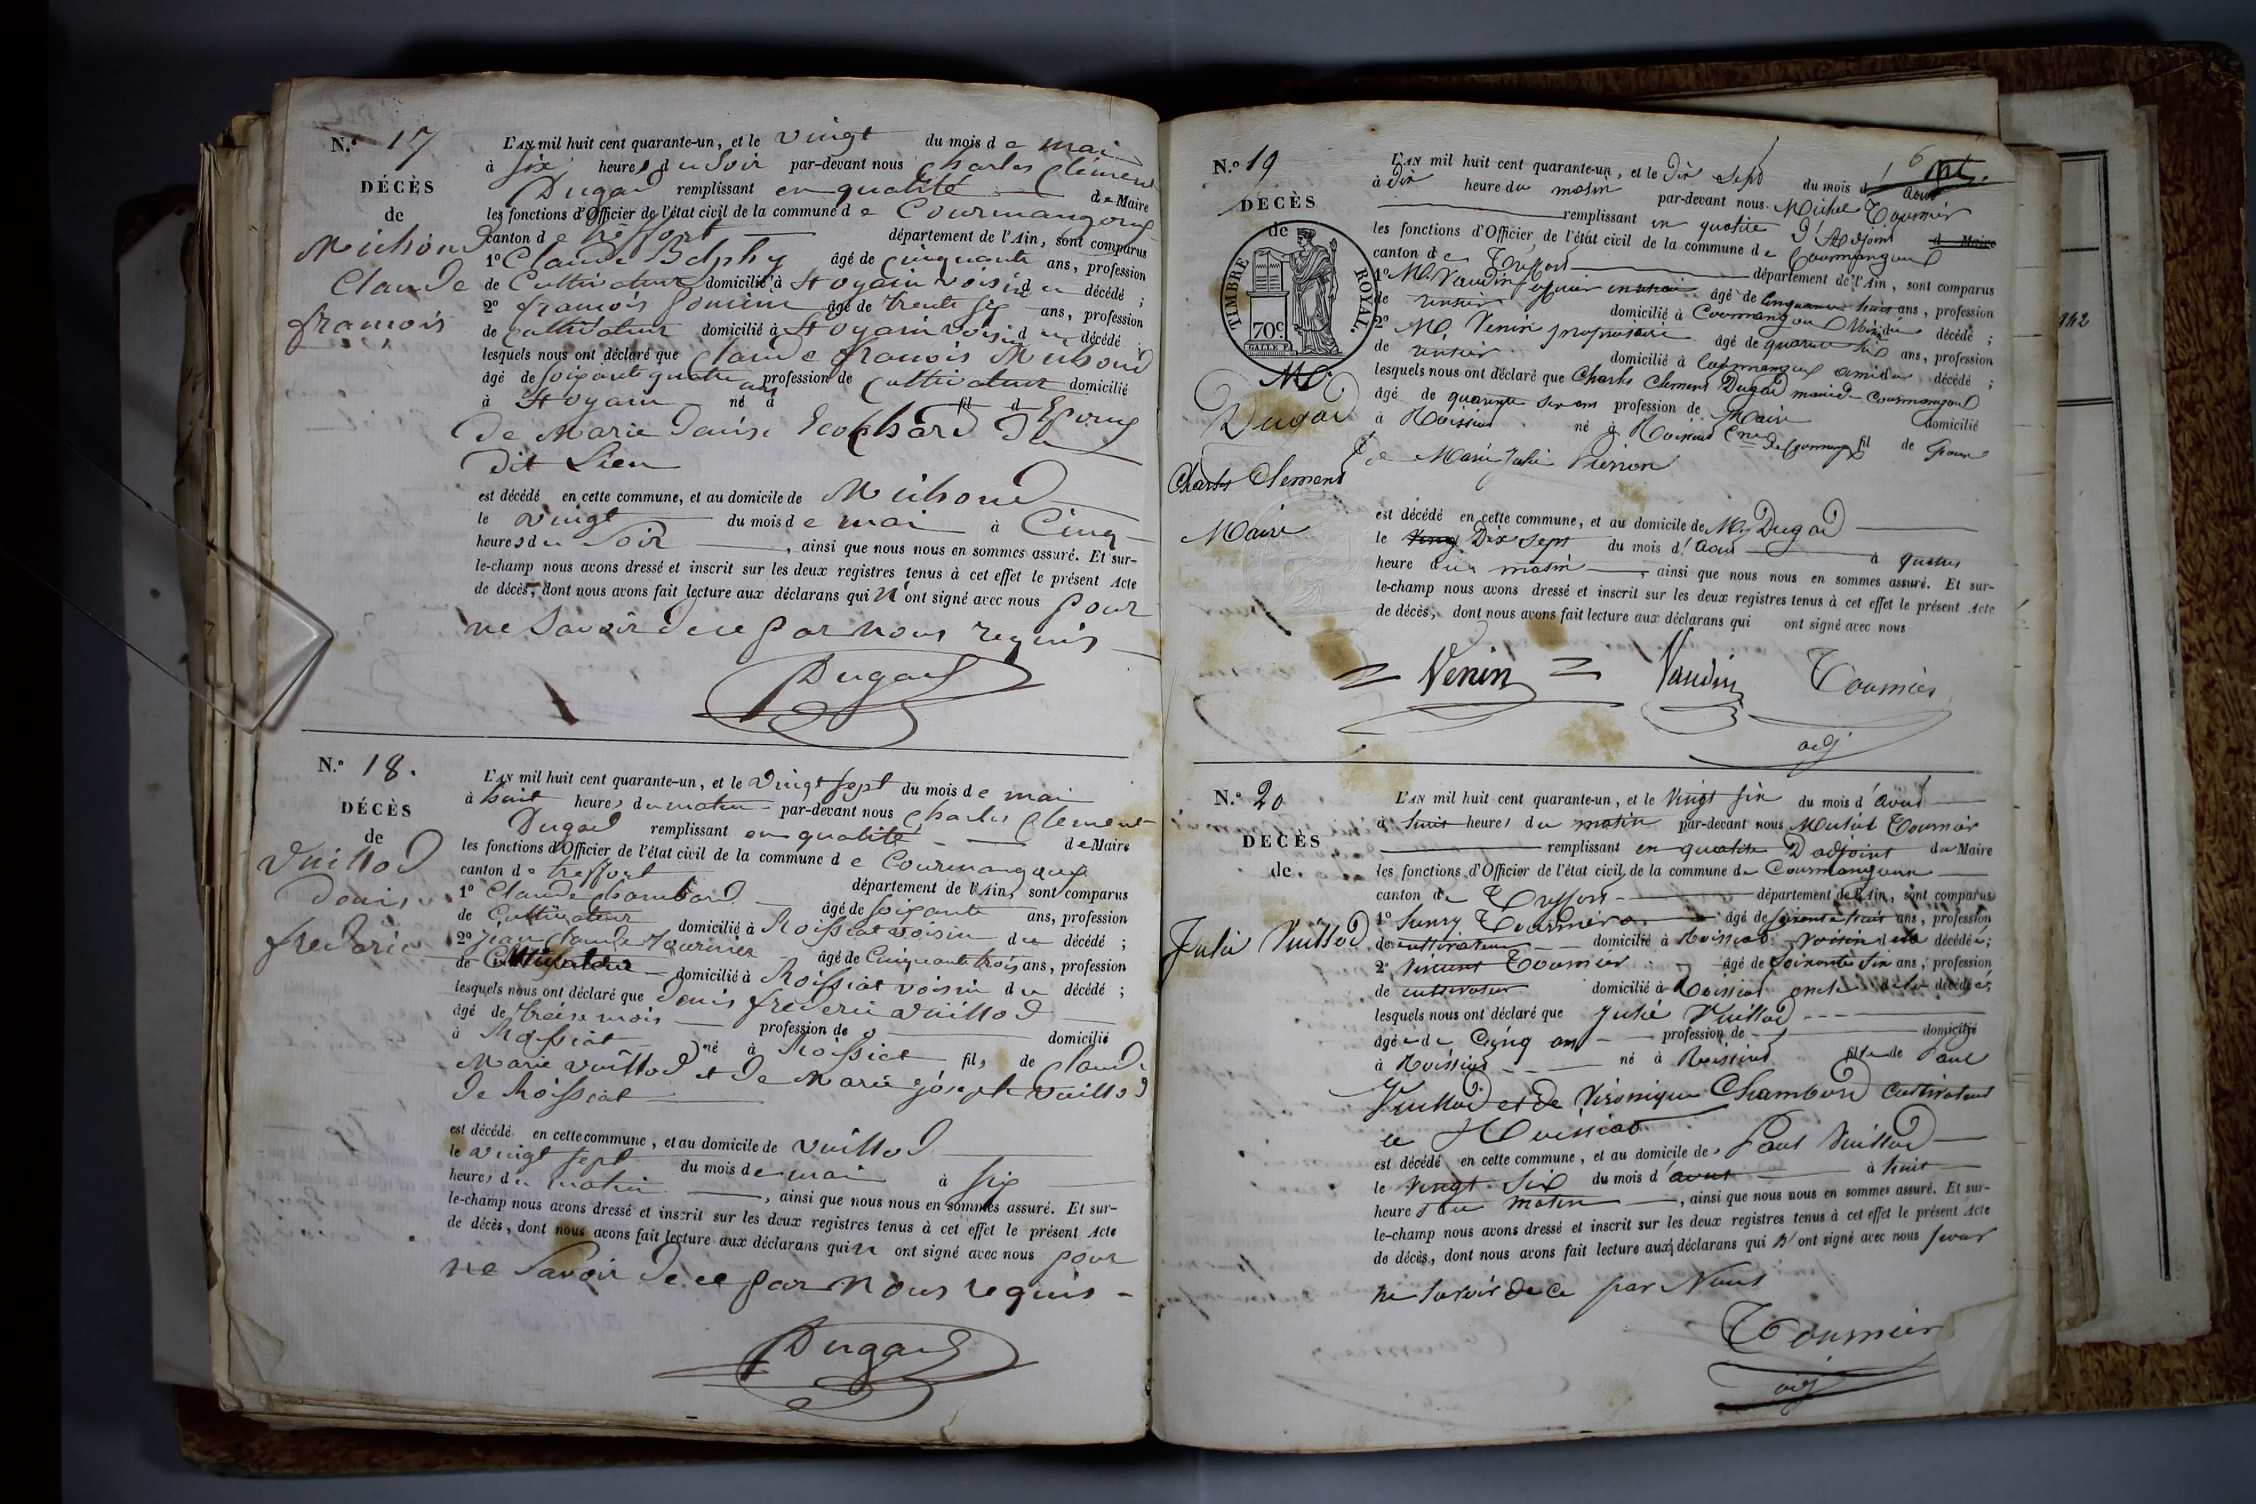 N.º 17
DÉCÈS
de
Michoud
Claude
françois
L'AN mil huit cent quarante-un, et le vingt du mois de mai
à six heures du soir par-devant nous Charles Clément
Dugad remplissant en qualité de Maire
les fonctions d'Officier de l'état civil de la commune de Courmangoux
canton de treffort département de l'Ain, sont comparus
1º Claude âgé de cinquante ans, profession
de Cultivateur domicilié à St oyain voisin du décédé ;
2º françois âgé de trente six ans, profession
de cultivateur domicilié à St oyain voisin du décédé ;
lesquels nous ont déclaré que Claude françois Michoud
âgé de soixante quatre ans profession de cultivateur domicilié
à St oyain né à fil d Epoux
de Marie Denise du
dit Lieu
est décédé en cette commune, et au domicile de Michoud
le vingt du mois de mai à Cinq
heures du soir, ainsi que nous nous en sommes assuré. Et sur-
le-champ nous avons dressé et inscrit sur les deux registres tenus à cet effet le présent Acte
de décès, dont nous avons fait lecture aux déclarans qui n'ont signé avec nous pour
ne savoir de ce par nous requis
Dugad
N.º 18.
DÉCÈS
de
Vuillod
Denis
frederic
L'AN mil huit cent quarante-un, et le vingt sept du mois de mai
à huit heures du matin par-devant nous Charles Clément
Dugad remplissant en qualité de Maire
les fonctions d'Officier de l'état civil de la commune de Courmangoux
canton de treffort département de l'Ain, sont comparus
1º Claude Chambard âgé de soixante ans, profession
de Cultivateur domicilié à Roissiat voisin du décédé ;
2º Jean Claude Tournier âgé de Cinquante trois ans, profession
de Cultivateur domicilié à Roissiat voisin du décédé ;
lesquels nous ont déclaré que Denis frederic Vuillod
âgé de treise mois profession de domicilié
à Roissiat né à Roissiat fils de Claude
Marie Vuillod et de Marie joseph Vuillod
de Roissiat
est décédé en cette commune, et au domicile de Vuillod
le vingt sept du mois de mai à six
heures du matin, ainsi que nous nous en sommes assuré. Et sur-
le-champ nous avons dressé et inscrit sur les deux registres tenus à cet effet le présent Acte
de décès, dont nous avons fait lecture aux déclarans qui n ont signé avec nous pour
ne savoir de ce par nous requis
Dugad
N.º 19
DÉCÈS
de
TIMBRE ROYAL.
70c
Mr
Dugad
Charles Clement
Maire
L'AN mil huit cent quarante-un, et le dix sept du mois d'aout
à dix heure du matin par-devant nous Michel Tournier
remplissant en qualité d'Adjoint de Maire
les fonctions d'Officier de l'état civil de la commune de Courmangoux
canton de Treffort département de l'Ain, sont comparus
1º Mr Vaudin âgé de Cinquante huit ans, profession
de rentier domicilié à Courmangoux Voisin du décédé ;
2º Mr Venin propriétaire âgé de quarante six ans, profession
de rentier domicilié à Courmangoux ami du décédé ;
lesquels nous ont déclaré que Charles Clement Dugad maire de Courmangoux
âgé de quarante six ans profession de Maire domicilié
à Roissiat né à Roissiat Cne de Courmangoux fil de
de Marie Julie
est décédé en cette commune, et au domicile de Mr Dugad
le Dix sept du mois d'Aout à quatre
heure du matin, ainsi que nous nous en sommes assuré. Et sur-
le-champ nous avons dressé et inscrit sur les deux registres tenus à cet effet le présent Acte
de décès, dont nous avons fait lecture aux déclarans qui ont signé avec nous
Venin Vaudin Tournier
adj
N.º 20
DÉCÈS
de
Julie Vuillod
L'AN mil huit cent quarante-un, et le vingt six du mois d'aout
à huit heures du matin par-devant nous Michel Tournier
remplissant en qualité D'adjoint du Maire
les fonctions d'Officier de l'état civil de la commune de Courmangoux
canton de Treffort département de l'Ain, sont comparus
1º Tournier âgé de soixante trois ans, profession
de cultivateur domicilié à Roissiat voisin de la décédée ;
2º Vincent Tournier âgé de soixante six ans, profession
de cultivateur domicilié à Roissiat oncle de la décédée ;
lesquels nous ont déclaré que Julie Vuillod
âgée de Cinq ans profession de domicilié
à Roissiat né à Roissiat fille de Paul
Vuillod et de Véronique Chambard cultivateurs
à Roissiat
est décédé en cette commune, et au domicile de Paul Vuillod
le vingt six du mois d'aout à huit
heures du matin, ainsi que nous nous en sommes assuré. Et sur-
le-champ nous avons dressé et inscrit sur les deux registres tenus à cet effet le présent Acte
de décès, dont nous avons fait lecture aux déclarans qui n'ont signé avec nous pour
ne savoir de ce par Nous
Tournier
adj